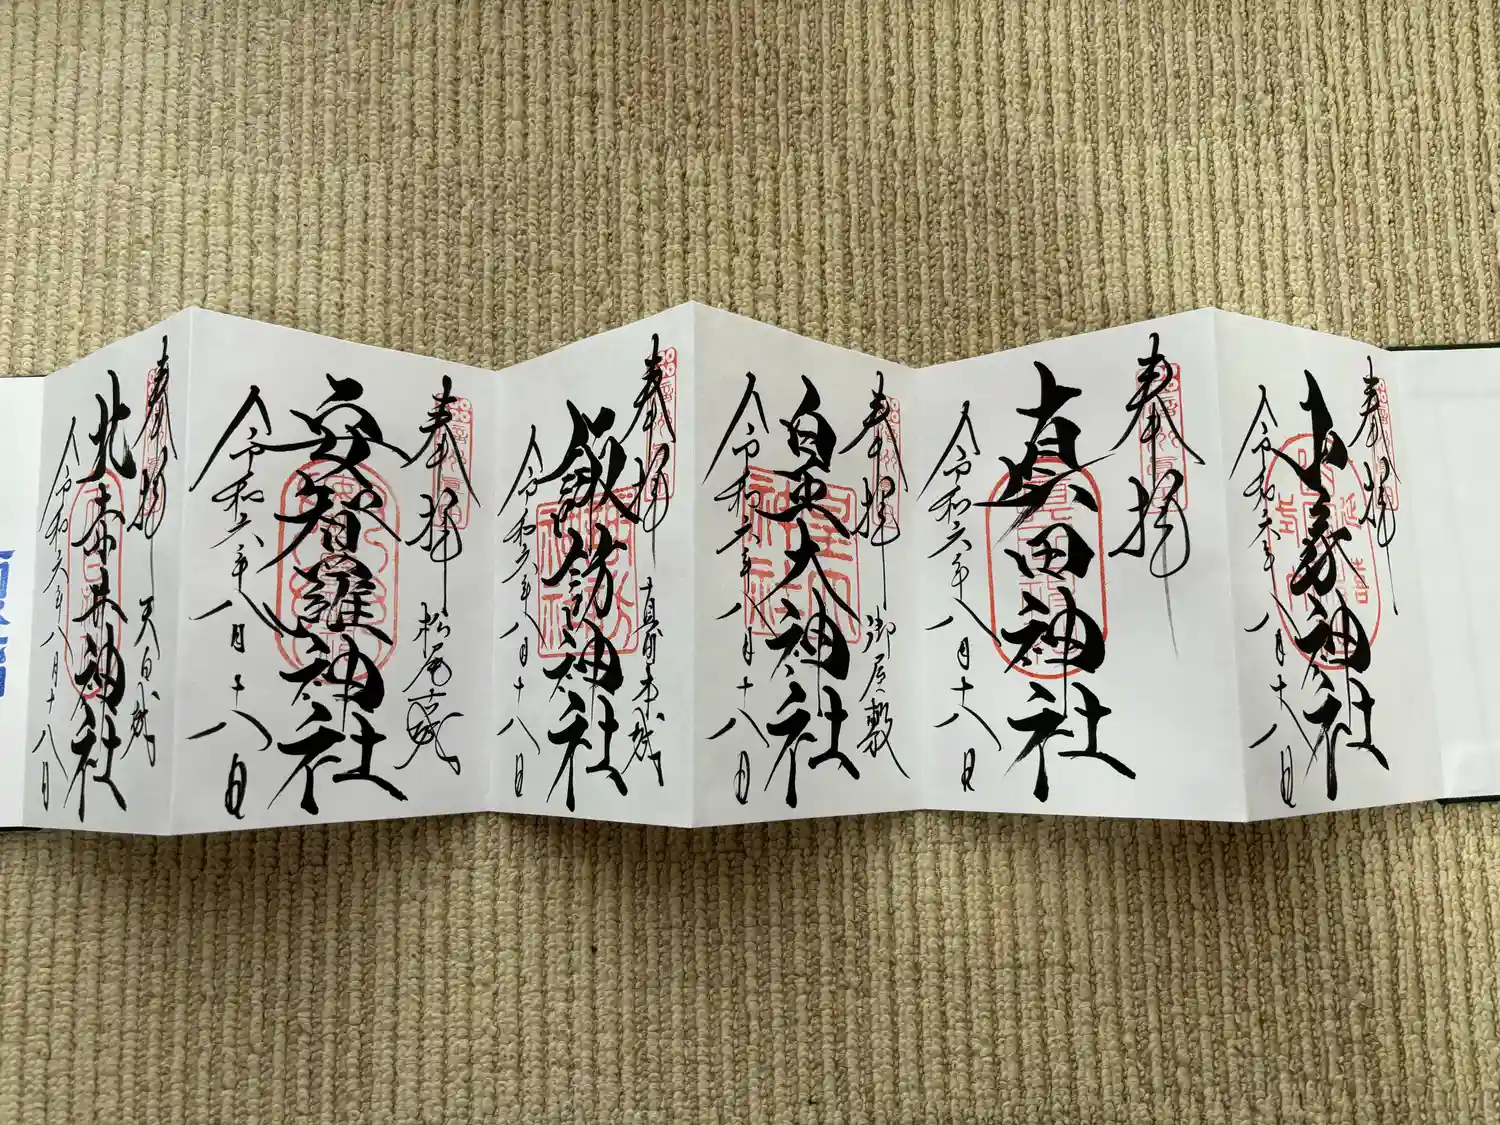 奉拝
山家神社
令和六年八月十八日
奉拝
真田神社
令和六年八月十八日
奉拝 御屋敷
皇大神社
皇大神社
令和六年八月十八日
奉拝 真田本城
諏訪神社
令和六年八月十八日
奉拝 松尾古城
安智羅神社
令和六年八月十八日
奉拝 天白城
北赤井神社
令和六年八月十八日